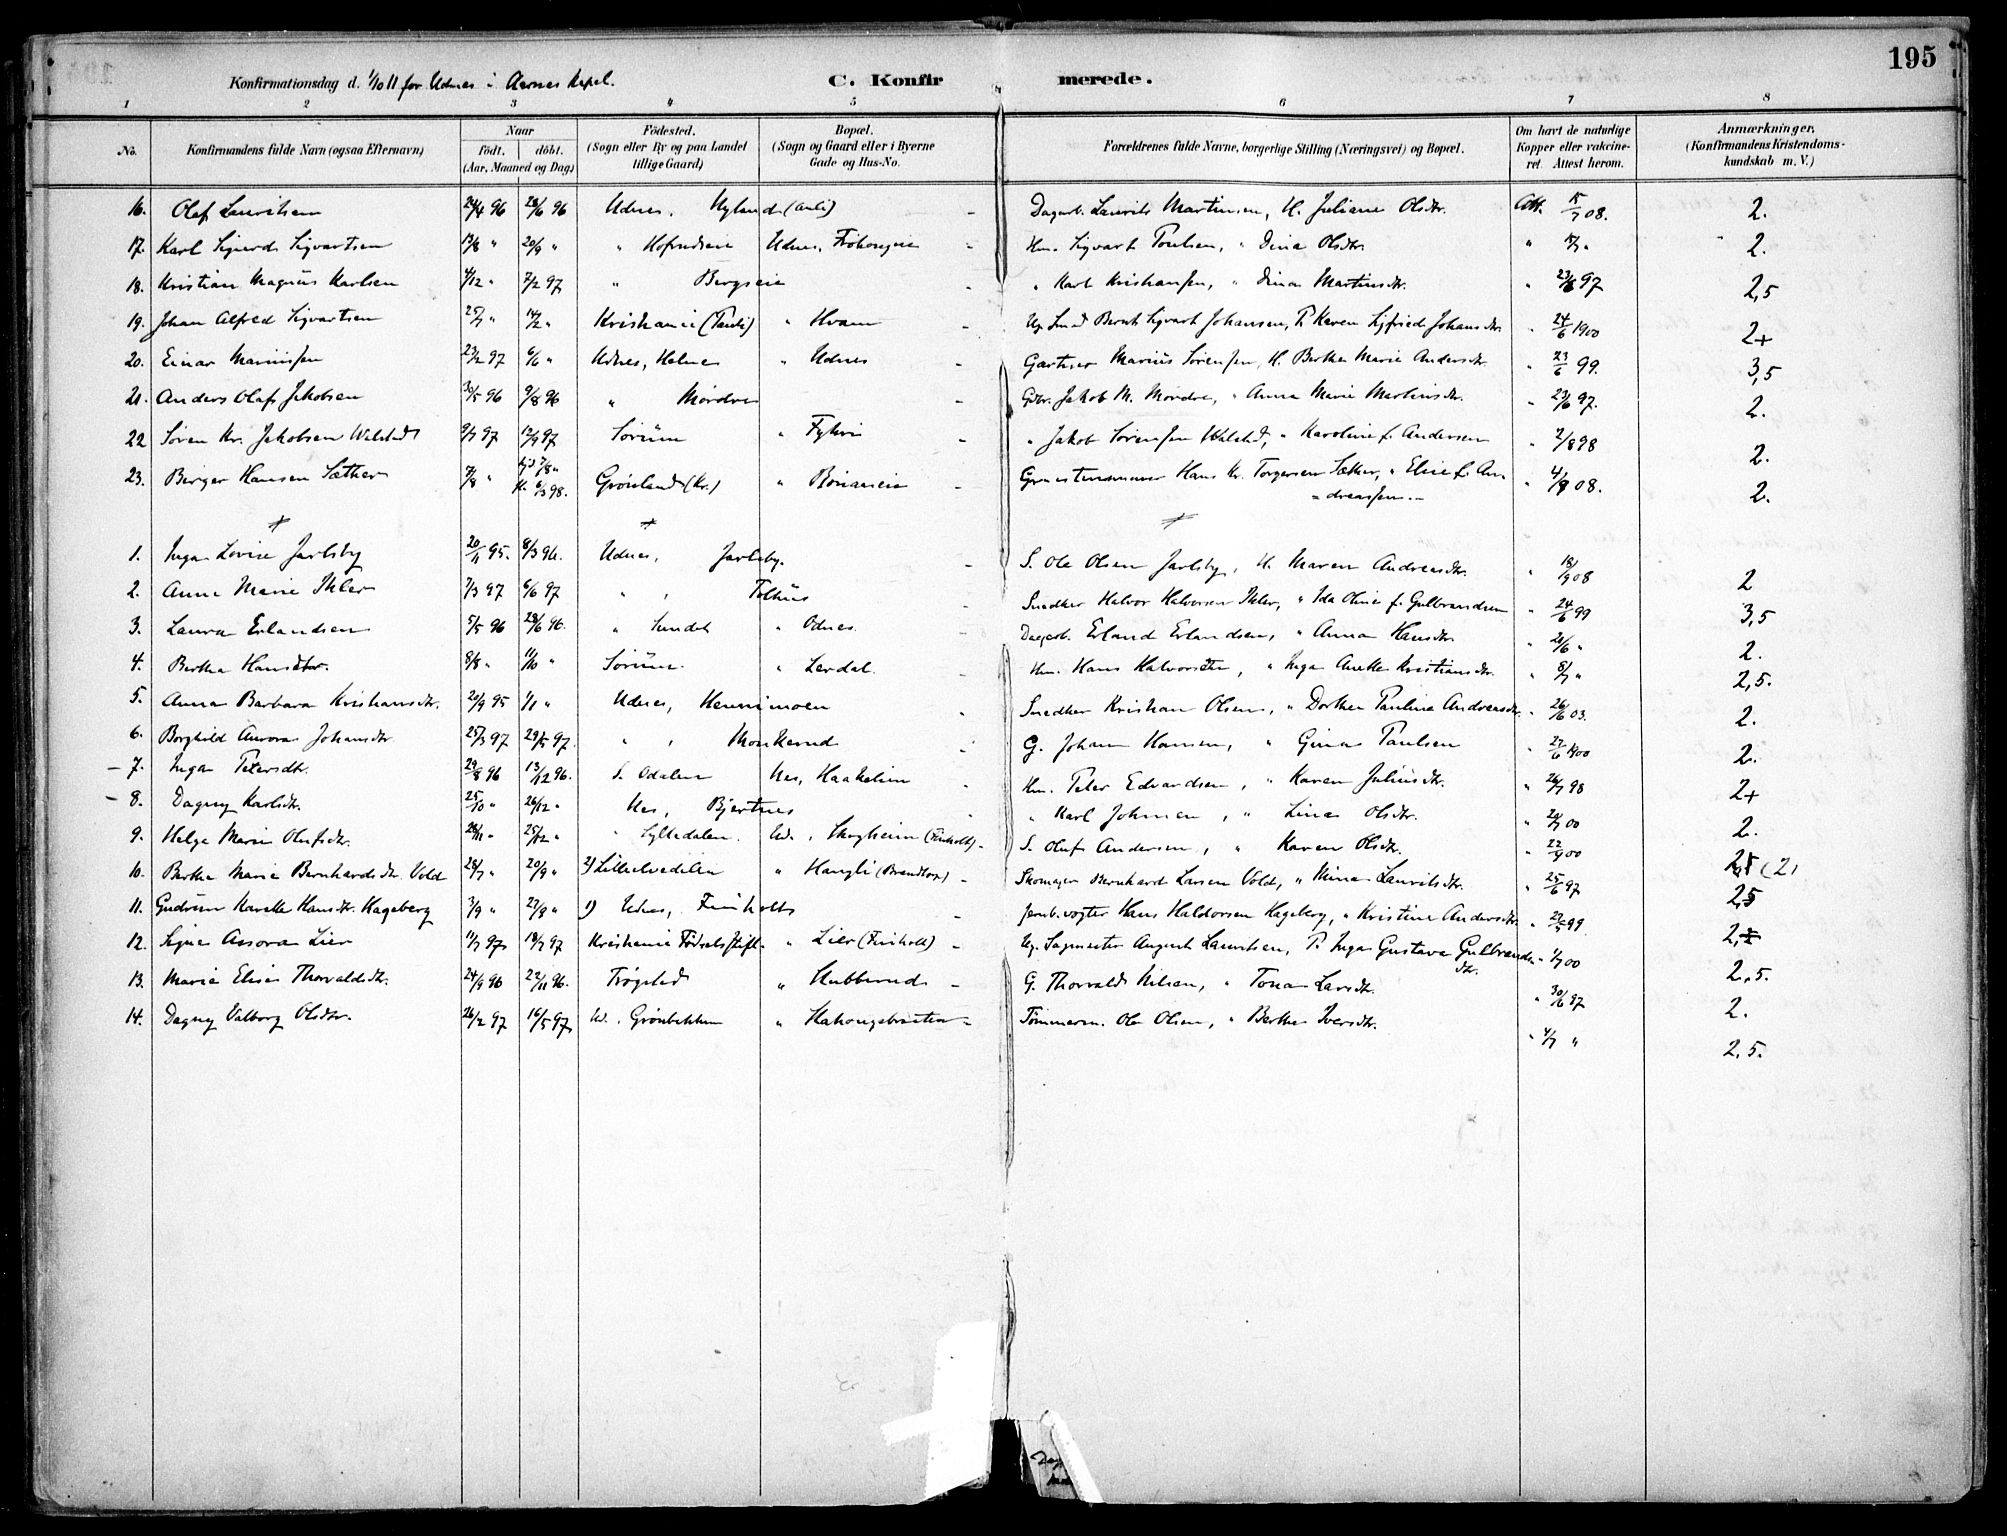 195
Konfirmationsdag d. 1/10 11 for Udnes i Aarnes Kapel. C. Konfirmerede.
1 2 3 4 5 6 7 8
No. Konfirmandens fulde Navn (ogsaa Efternavn) Naar født. døbt. (Aar, Maaned og Dag) Fødested. (Sogn eller By og paa Landet tillige Gaard) Bopæl. (Sogn og Gaard eller i Byerne Gade og Hus-No. Forældrenes fulde Navne, borgerlige Stilling (Næringsvei) og Bopæl. Om havt de naturlige Kopper eller vaccineret. Attest herom. Anmærkninger. (Konfirmandens Kristendomskundskab m. V.)
16. Olaf Lauritsen 24/4 96 28/6 96 Udnes, Nyland Dagarb. Laurits Martinsen, H. Juliane Olsdtr. Att. 15/7 08. 2.
17. Karl Sigurd Sigvartsen 13/8 " 20/9 " " Udnes, Hm. Sigvart Poulsen, " Dina Olsdtr. " 15/7 " 2.
18. Kristian Magnus Karlsen 4/12 " 7/2 97 " Bergseie " Karl Kristiansen, " Dina Martinsdtr. " 23/6 97 2,5
19. Johan Alfred Sigvartsen 25/7 " 14/2 " Kristiania " Hvam Ug. Smed Bernt Sigvart Johansen, P. Karen Sigfried Johansdtr. " 24/6 1900 2+
20. Einar Mariussen 23/2 97 6/6 " Udnes, Helnes " Udnes Gartner Marius Sørensen, H. Berthe Marie Andersdtr. " 23/6 99. 3,5
21. Anders Olaf Jakobsen 30/5 96 9/8 96 " Mordre Gbr. Jakob M. Mordre, " Anna Marie Martinsdtr. " 23/6 97. 2.
22 Søren Kr. Jakobsen Walstad 9/7 97 12/9 97 Sørum " Jakob Sørensen Walstad, " Karoline f. Andersen " 2/8 98 2.
23. Birger Hansen Sæther 7/8 " hjd 7/8 " K. 6/3 98. Grønland (Kr.) " Hans Kr. Torgersen Sæther, " Elise f. An-
dreassen. 4/9 08. 2.
1. Inga Lovise Jarlsby 20/11 95. 8/3 96. Udnes, Jarlsby. S. Ole Olsen Jarlsby, H. Maren Andreasdtr. " 18/9 08 2
2. Anna Marie Ihler 7/3 97 6/6 97 " Folhus Snedker Halvor Halvorsen Ihler, " Ida Oline f. Gulbrandsen " 24/6 99 3,5
3. Laura Erlandsen 5/5 96 28/6 96. " Sundet " Odnes. Dagarb. Erland Erlandsen, " Anna Hansdtr. " 20/6 " 2.
4. Berthe Hansdtr. 8/8 " 11/10 " Sørum. " Lerdal. Hm. Hans Halvorsen, " Inga Anette Kristiansdtr. " 8/7 " 2,5.
5. Anna Barbara Kristiansdtr. 20/9 95 1/1 " Udnes, Hennimoen Snedker Kristian Olsen, " Dorthea Pauline Andreasdtr. " 26/6 03. 2.
6. Borghild Aurora Johansdtr. 25/3 97 29/5 97. " Monkerud G. Johan Hansen, " Gina Paulsen " 27/6 1900 2.
7. Inga Petersdtr. 29/8 96 13/12 96. S. Odalen Nes, Haakelien Hm. Peter Edvardsen, " Karen Juliusdtr. " 26/7 98 2+
8. Dagny Karlsdtr. 25/10 " 26/12 " Nes, Bjertnes " Karl Johnsen, " Lina Olsdtr. " 20/7 00 2.
9. Helga Marie Olufsdtr. 28/11 " 25/12 " " Sylledalen. Ud., Skogheim (Finholt) S. Oluf Andersen, " Karen Olsdtr. " 22/9 00 2,5 (2)
10. Berthe Marie Bernhardsdtr. Vold 28/7 " 20/9 " 2) Lilleelvedalen " Haugli Skomager Bernhard Larsen Vold, " Mina Lauritsdtr. " 25/6 97 2,5
11. Gudrun Karette Hansdtr. Hageberg 3/9 " 27/9 " 1) Udnes, Finholt Jernb.vogter Hans Haldorsen Hageberg, " Kristine Andersdtr. " 22/5 99. 2,
12. Signe Assora Lier 11/7 97 18/7 97 Kristiania Fødselsstift. " Lier (Finholt) Ug. Sagmester August Lauritsen, P. Inga Gustava Gulbrands-
dtr. " 1/7 00 2,5.
13. Marie Elise Thorvaldsdtr. 24/9 96 22/11 96. Trøgstad " Hubberud G. Thorvald Nilsen, " Tona Larsdtr. " 30/6 97 2.
14. Dagny Valborg Olsdtr. 26/2 97 16/5 97 U., Grønbekken " Tømmerm. Ole Olsen, " Berthe Iversdtr. " 4/7 " 2,5.